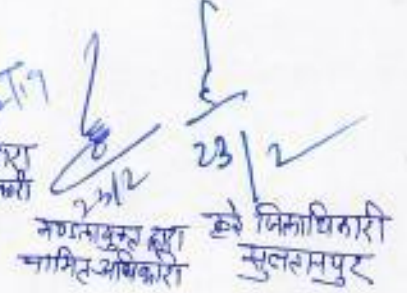 23/2
23/2
मण्डलायुक्त द्वारा
नामित अधिकारी
कृते जिलाधिकारी
सुलतानपुर